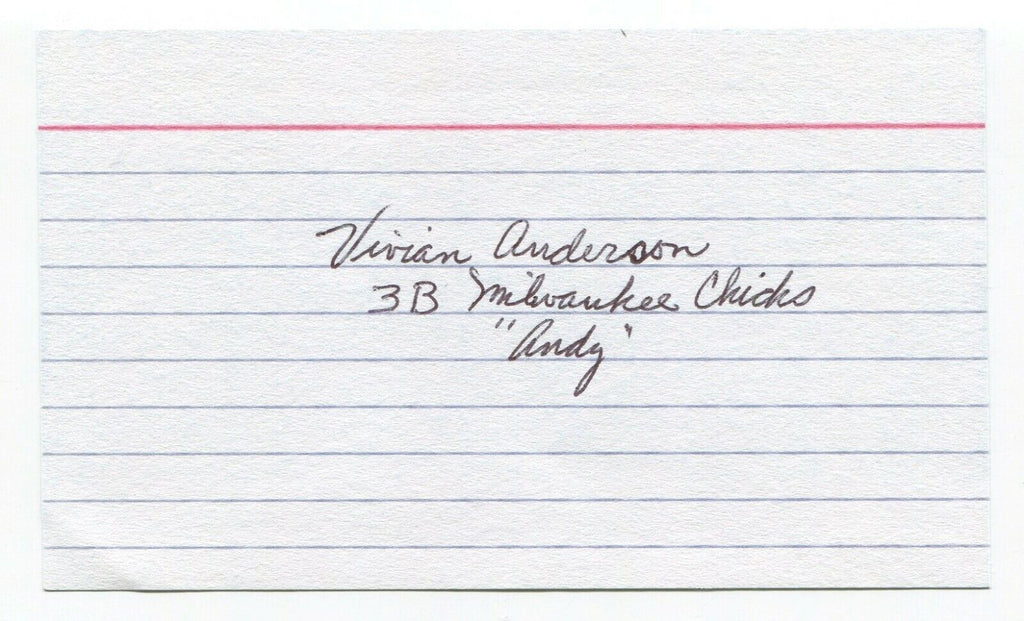 Vivian Anderson
3B Milwaukee Chicks
"Andy"